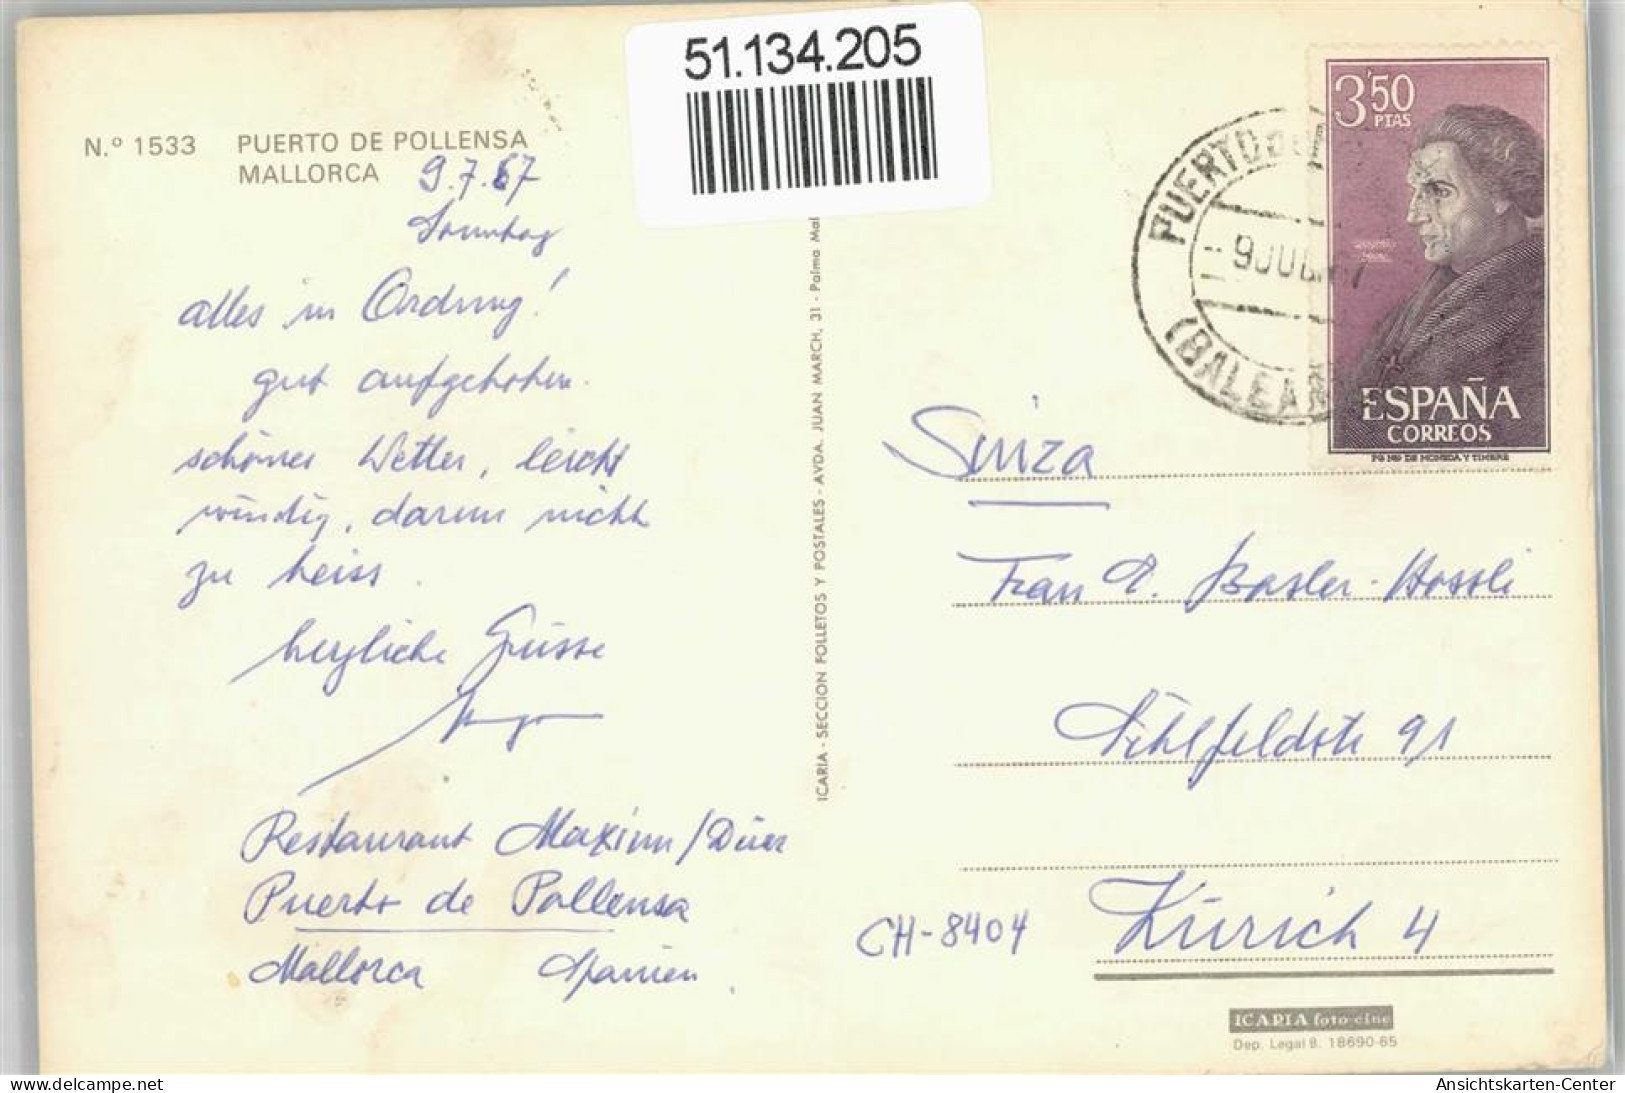 51.134.205
N.º 1533 PUERTO DE POLLENSA
MALLORCA
9.7.67
Sonntag
alles in Ordnung!
gut aufgehoben.
schönes Wetter, leicht
windig, darum nicht
zu heiss.
herzliche Grüsse
Restaurant Maxim/Dürr
Puerto de Pollensa
Mallorca Spanien
ICARIA - SECCION FOLLETOS Y POSTALES - AVDA. JUAN MARCH, 31 - Palma Mal
3'50
PTAS
ESPAÑA
CORREOS
PUERTO DE
9 JUL 67
(BALEAR
Suiza
Frau E. Basler-Hossli
Sihlfeldstr 91
CH-8404 Zürich 4
ICARIA foto-cine
Dep. Legal B. 18690-65
delcampe.net
Ansichtskarten-Center